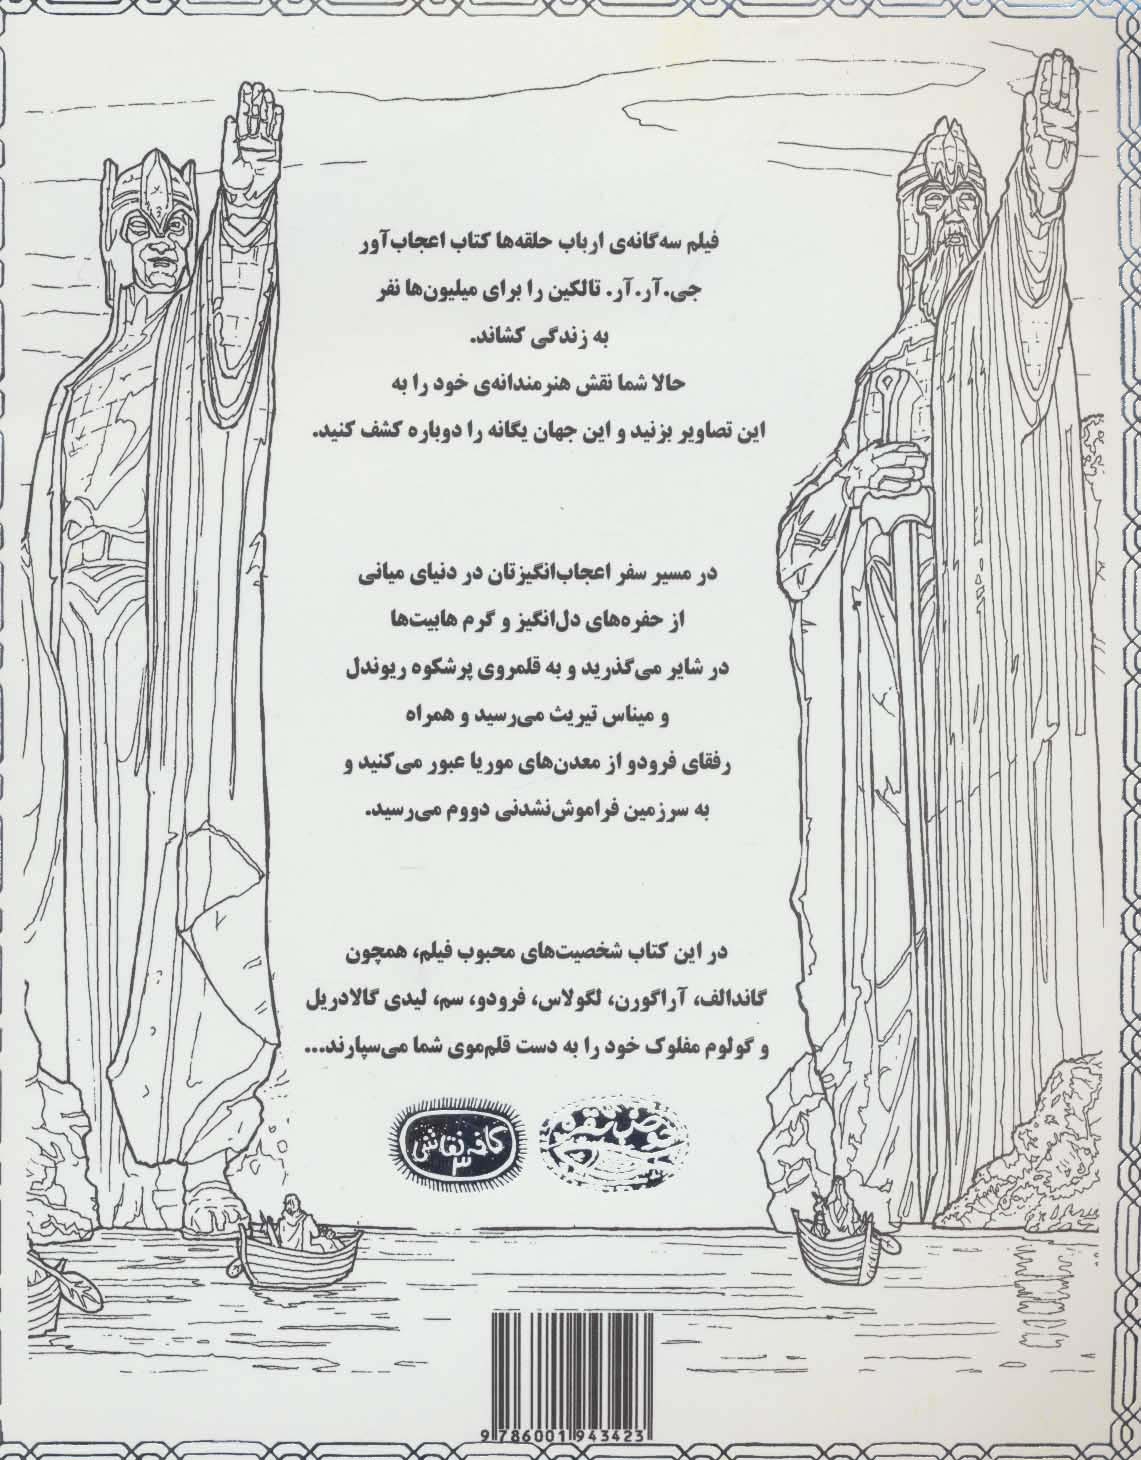 فیلم سه‌گانه‌ی ارباب حلقه‌ها کتاب اعجاب‌آور
جی.آر.آر. تالکین را برای میلیون‌ها نفر
به زندگی کشاند.
حالا شما نقش هنرمندانه‌ی خود را به
این تصاویر بزنید و این جهان یگانه را دوباره کشف کنید.
در مسیر سفر اعجاب‌انگیزتان در دنیای میانی
از حفره‌های دل‌انگیز و گرم هابیت‌ها
در شایر می‌گذرید و به قلمروی پرشکوه ریوندل
و میناس تیریث می‌رسید و همراه
رفقای فرودو از معدن‌های موریا عبور می‌کنید و
به سرزمین فراموش‌نشدنی دووم می‌رسید.
در این کتاب شخصیت‌های محبوب فیلم، همچون
گاندالف، آراگورن، لگولاس، فرودو، سم، لیدی گالادریل
و گولوم مفلوک خود را به دست قلم‌موی شما می‌سپارند...
حوض نقره
کافه نقاشی
۳
9 786001 943423